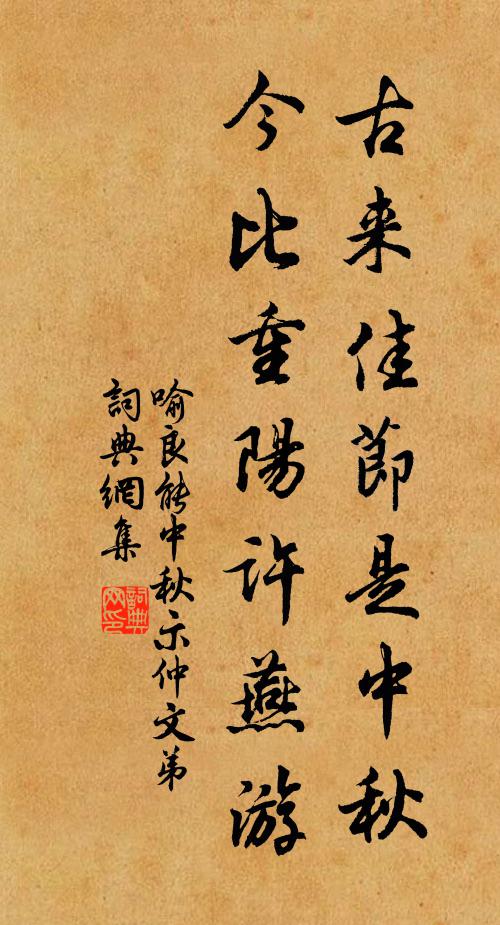 古来佳節是中秋
今比重陽許燕游
喻良能中秋示仲文弟
詞典網集
詞典網印